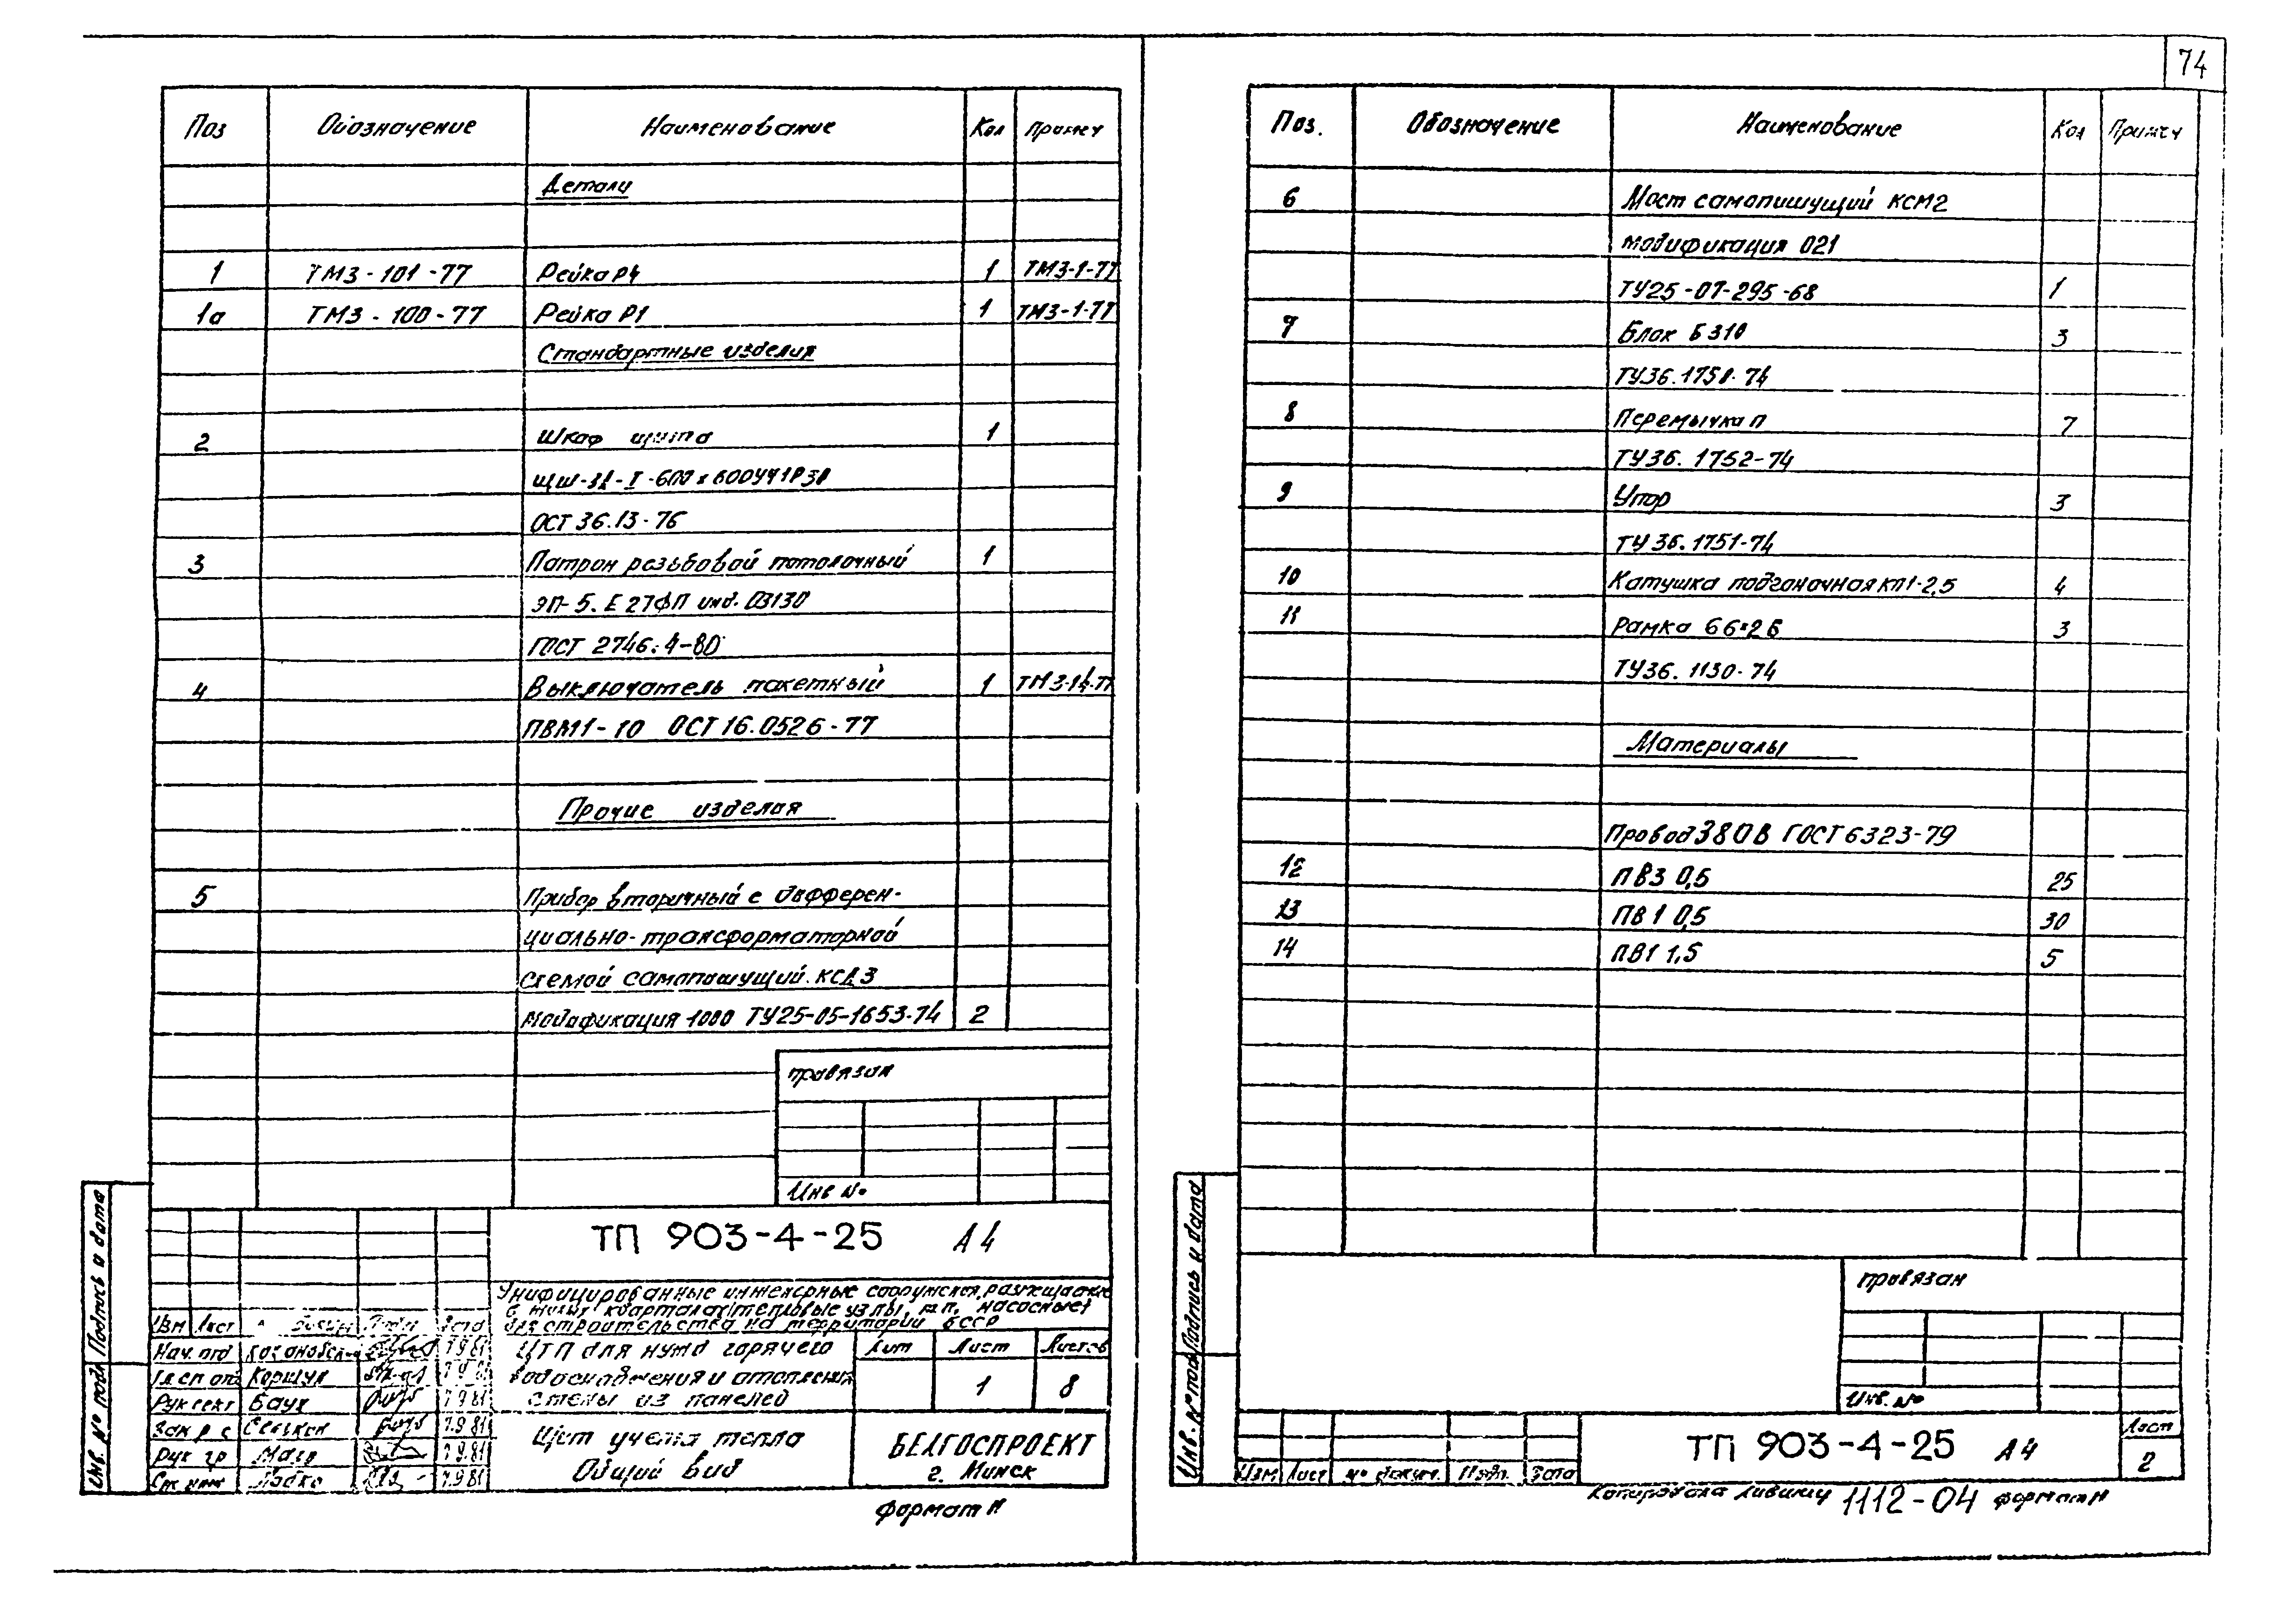 74
Поз Обозначение Наименование Кол Примеч
Детали
1 ТМ3-101-77 Рейка Р4 1 ТМ3-1-77
1а ТМ3-100-77 Рейка Р1 1 ТМ3-1-77
Стандартные изделия
2 Шкаф щита 1
ОСТ 36.13-76
3 Патрон резьбовой потолочный 1
ЭП-5. Е27ФП инд. 03130
ГОСТ 2746.4-80
4 Выключатель пакетный 1
ПВМ1-10 ОСТ 16.0526-77
Прочие изделия
5 Прибор вторичный с дифферен-
циально-трансформаторной
схемой самопишущий. КСД3
модификация 1000 ТУ25-05-1653-74 2
привязан
Инв №
ТП 903-4-25 А4
Унифицированные инженерные
в жилых кварталах (тепловые узлы, насосные)
для строительства на территории БССР
ЦТП для нужд горячего
водоснабжения и отопления
Стены из панелей
Лит Лист Листов
1 8
Щит учета тепла
Общий вид
БЕЛГОСПРОЕКТ
г. Минск
Изм Лист Дата
Нач. отд 7.9.81
Гл. сп. отд Коршун
Рук сект Баух 7.9.81
7.9.81
Рук гр 7.9.81
7.9.81
Инв. № подл Подпись и дата
формат
Поз. Обозначение Наименование Кол Примеч
6 Мост самопишущий КСМ2
модификация 021
ТУ25-07-295-68 1
7 Блок Б310 3
ТУ36.1750-74
8 Перемычка П 7
ТУ36.1752-74
9 Упор 3
ТУ36.1751-74
10 Катушка подгоночная КП1-2,5 4
11 Рамка 66×26 3
ТУ36.1130-74
Материалы
Провод 380В ГОСТ 6323-79
12 ПВ3 0,5 25
13 ПВ1 0,5 30
14 ПВ1 1,5 5
привязан
Инв. №
Изм Лист № докум. Подп. Дата
ТП 903-4-25 А4
Лист
2
Инв. № подл Подпись и дата
Копировала 1112-04 формат